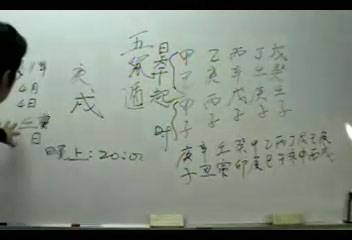 五鼠遁
日干起時
甲乙丙丁戊
己庚辛壬癸
甲丙戊庚壬
子子子子子
庚戌
1年
4月
4日
日
晚上:20:00
庚辛壬癸甲乙丙丁戊己庚
子丑寅卯辰巳午未申酉戌